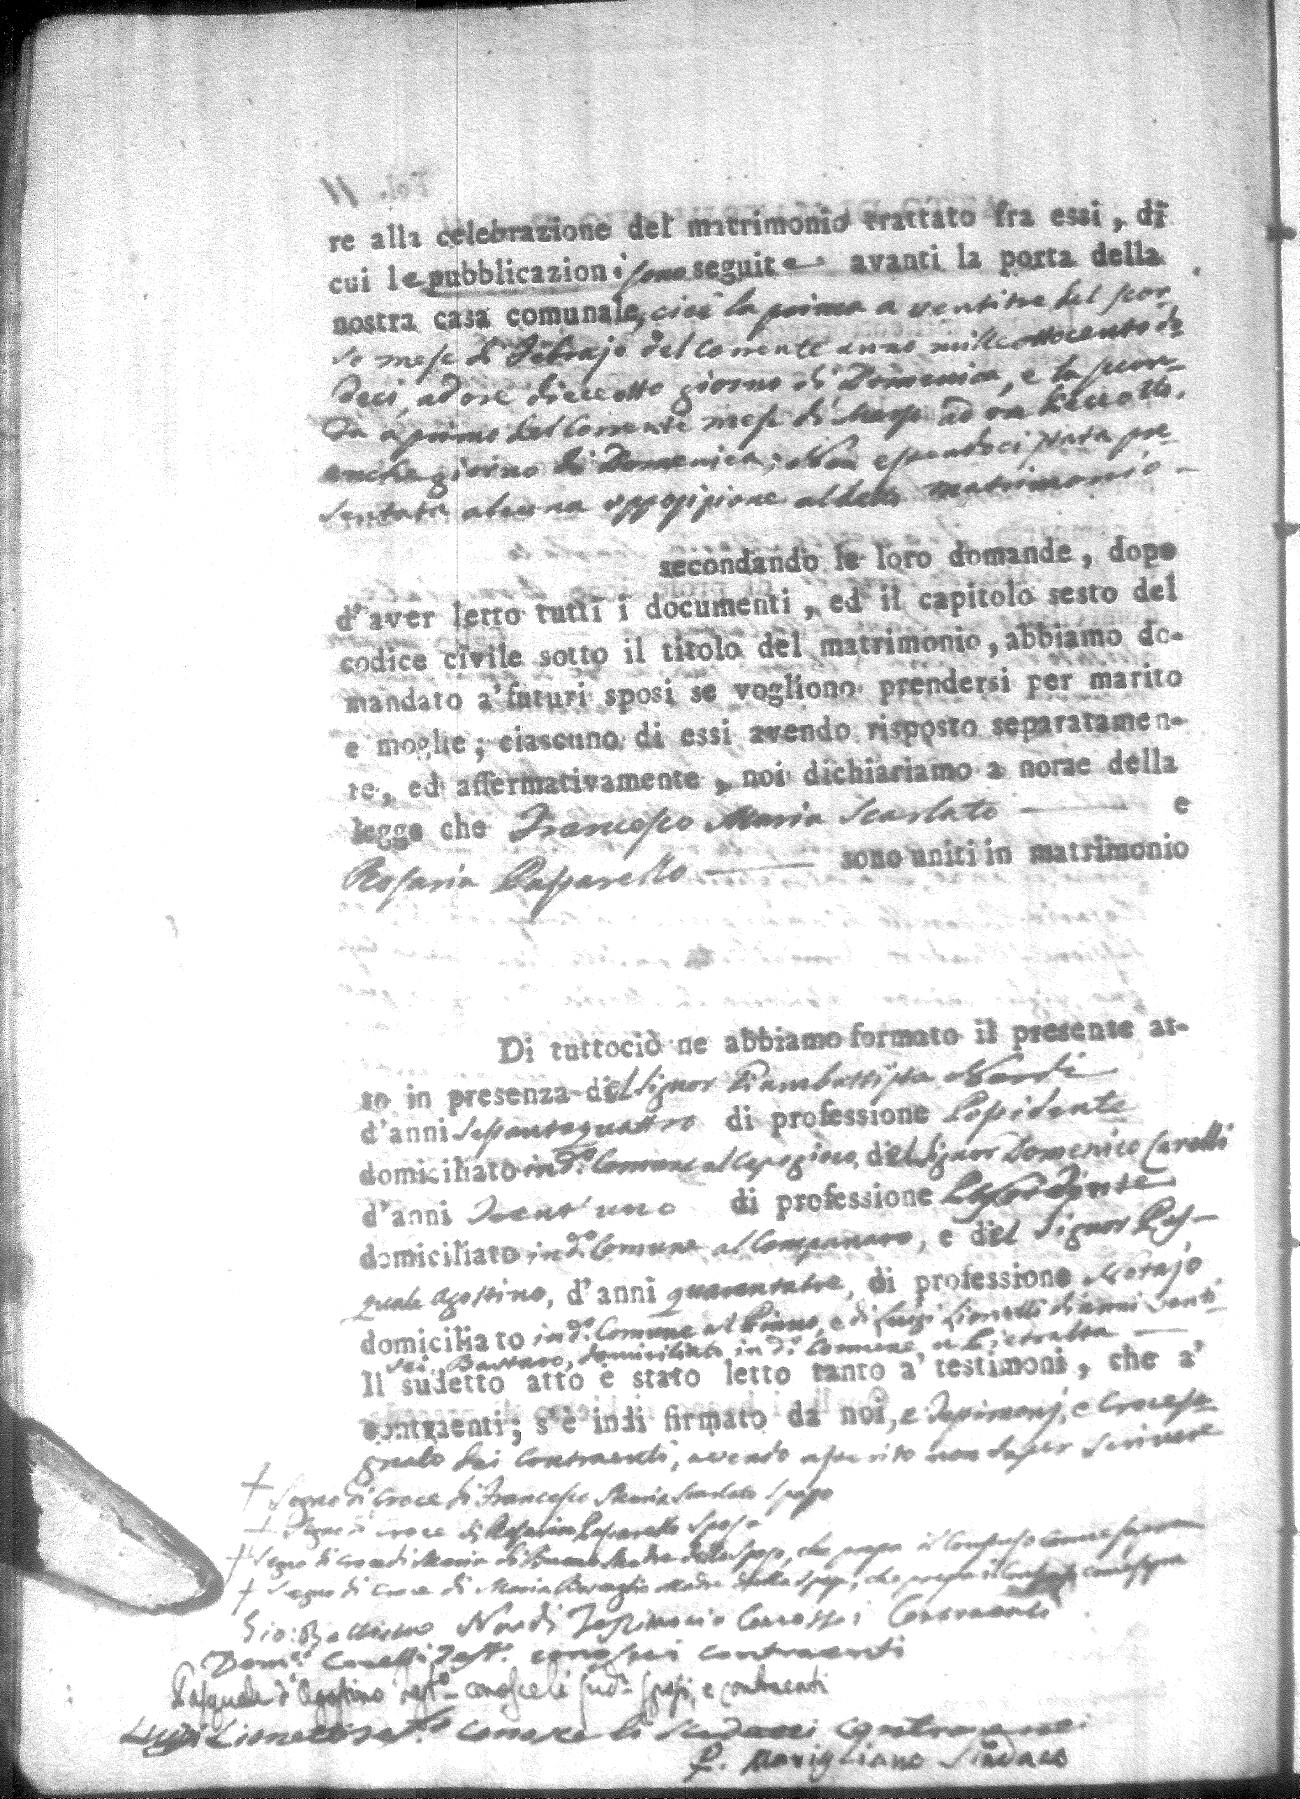 re alla celebrazione del matrimonio trattato fra essi, di
cui le pubblicazioni sono seguite avanti la porta della
nostra casa comunale, cioè la prima a ventitre del scor-
so mese di Febrajo del corrente anno mille ottocento do
deci, ad ore dieciotto giorno di Domenica, e la secon-
da a primo del corrente mese di Marzo ad ore
anche giorno di Domenica; Non essendoci stata pre-
sentata alcuna opposizione al detto matrimonio
secondando le loro domande, dopo
d'aver letto tutti i documenti, ed il capitolo sesto del
codice civile sotto il titolo del matrimonio, abbiamo do-
mandato a' futuri sposi se vogliono prendersi per marito
e moglie; ciascuno di essi avendo risposto separatamen-
te, ed affermativamente, noi dichiariamo a norae della
legge che Francesco Maria Scarlato e
Rosaria Papparello sono uniti in matrimonio
Di tuttociò ne abbiamo formato il presente at-
to in presenza del Signor Giambattista Nardi
d'anni sessantaquattro di professione Possidente
domiciliato in do. Comune al, del Signor Domenico Carelli
d'anni Trent'uno di professione Possidente
domiciliato in do. Comune al Campanaro, e del Signor Pas-
quale Agostino, d'anni quarantatre, di professione Notajo
domiciliato in do. Comune al Piano, e di Luigi Lionetti di anni venti
sei, domiciliato in do. Comune a Pietralta
Il sudetto atto è stato letto tanto a' testimoni, che a'
contraenti; s'è indi firmato da noi, e Testimonj, e Crocese-
gnato dai contraenti, avendo asserito non saper scrivere
+ Segno di Croce di Francesco Maria Scarlato sposo
+ Segno di Croce di Rosaria Papparello Sposa
+ Segno di Croce di Maria di Madre dello Sposo, che presta il Consenso come sopra
+ Segno di Croce di Maria Madre della Sposa, che presta il come sopra
Gio: Battista Nardi Testimonio Conosco i Contraenti
Domco. Carelli Testo. conosco i contraenti
Pasquale d'Agostino testo. conosce li sudi. sposi, e contraenti
Luigi Lionetti testo. conosce li contraenti
P. Marigliano Sindaco